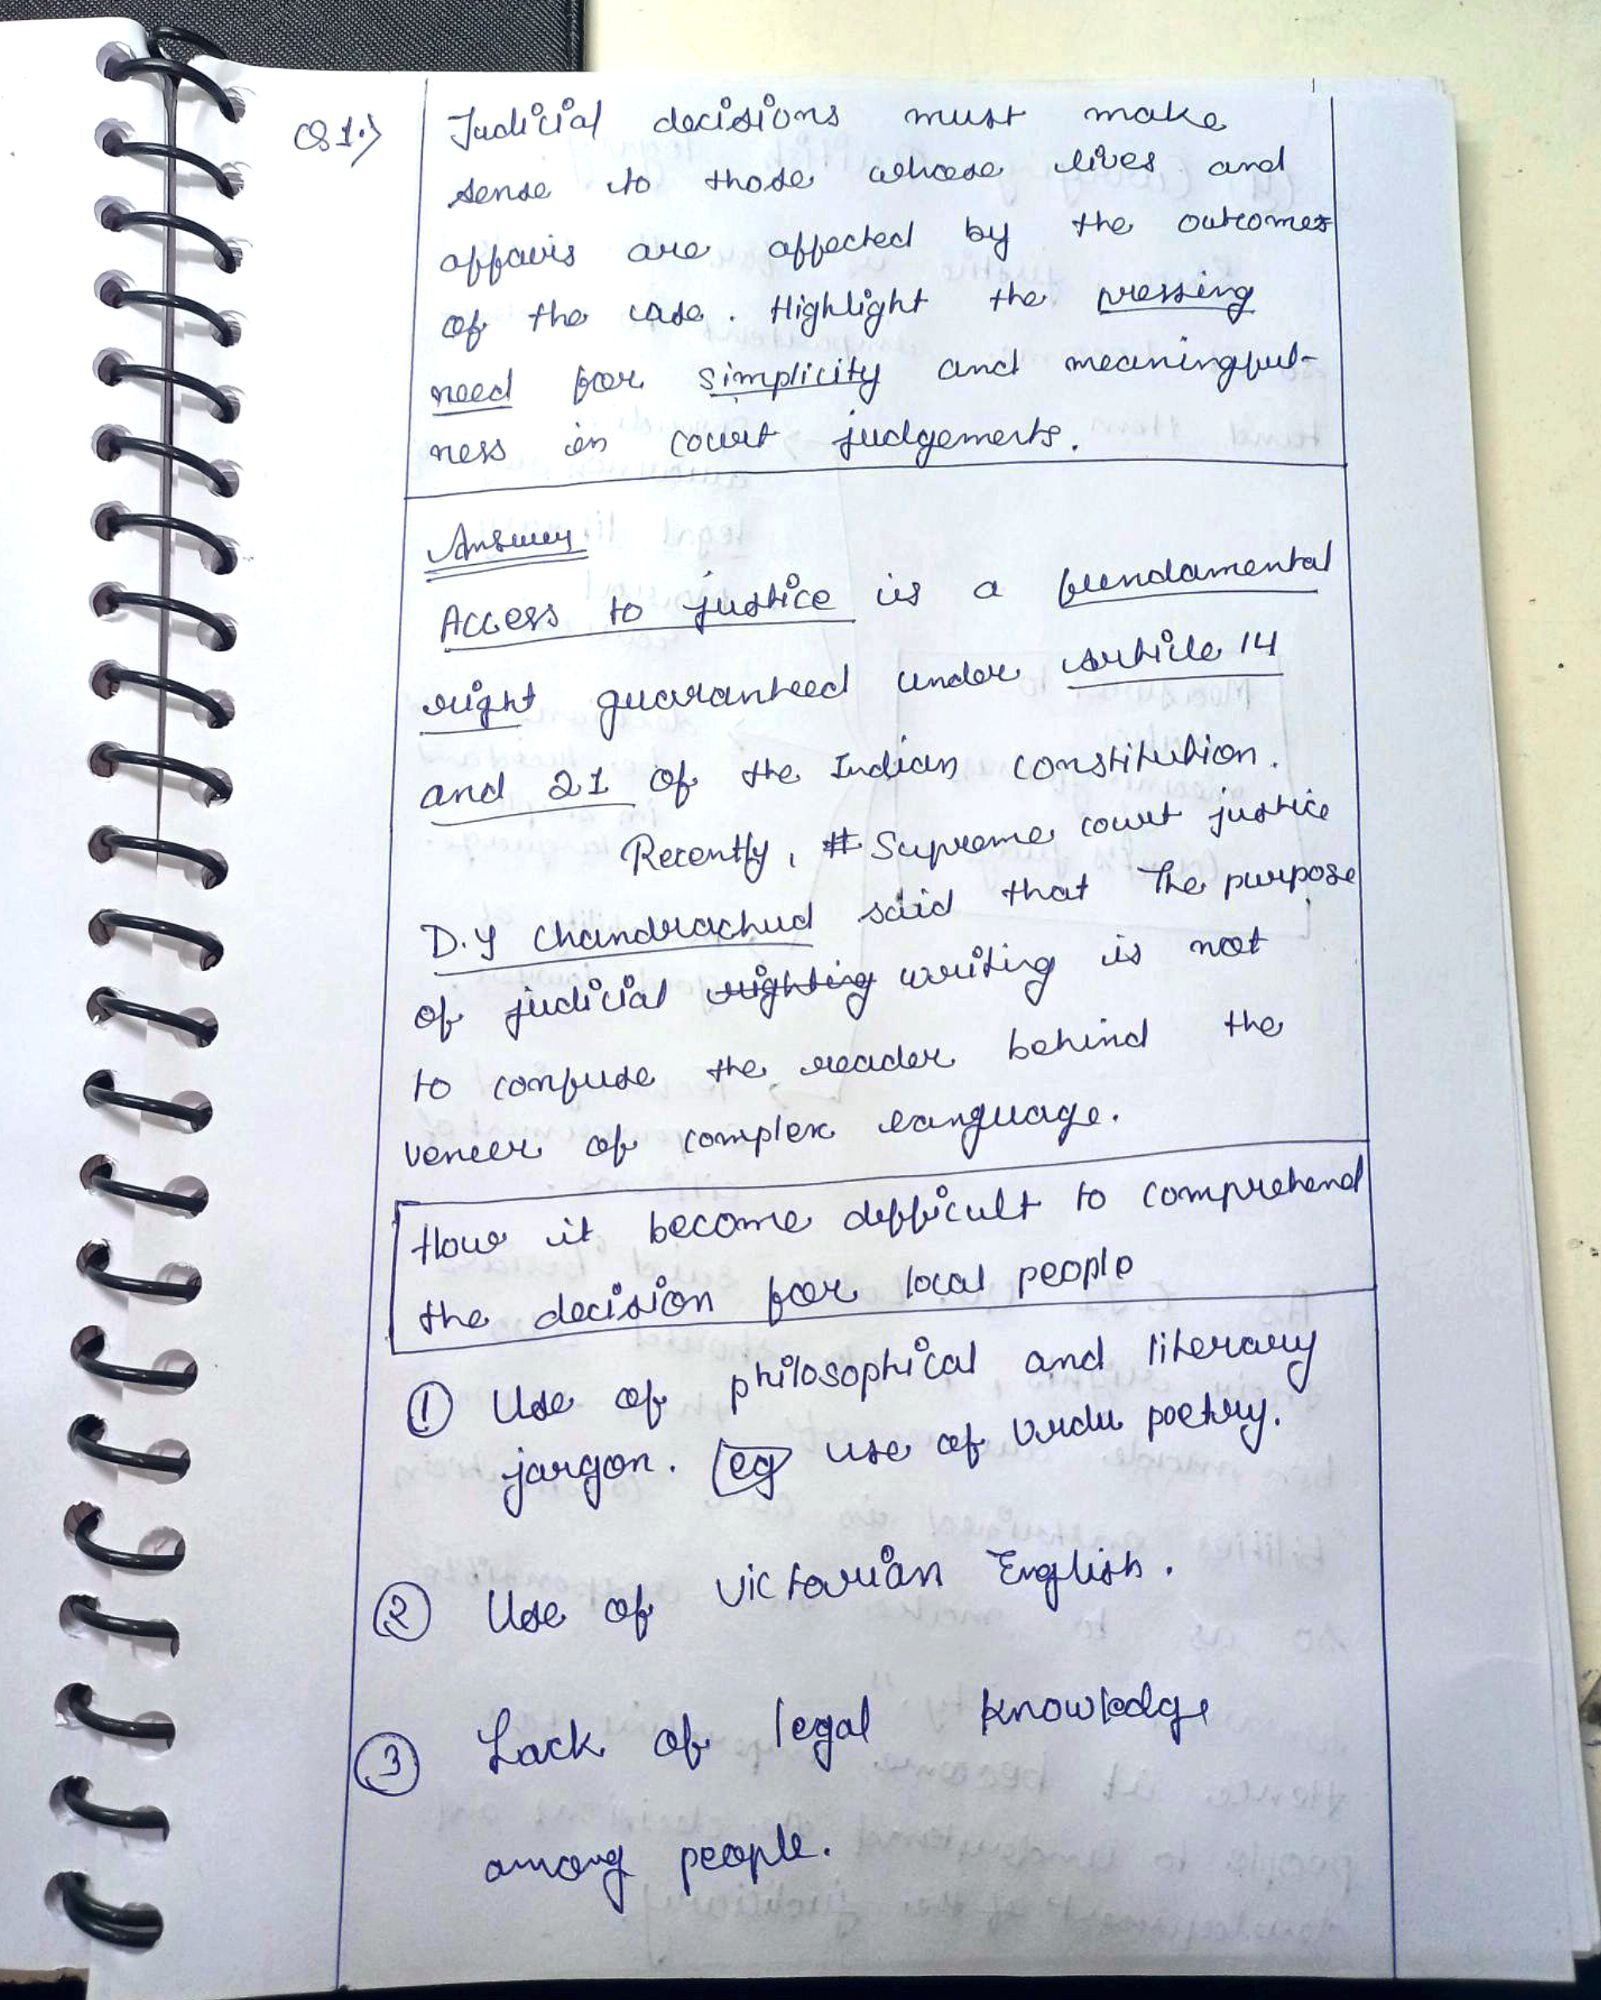 Q 1.)
Judicial decisions must make
sense to those whose lives and
affairs are affected by the outcomes
of the case. Highlight the pressing
need for simplicity and meaningful-
ness in court judgements.
Answer
Access to justice is a fundamental
right guaranteed under Article 14
and 21 of the Indian constitution.
Recently, Supreme court justice
D.Y Chandrachud said that The purpose
of judicial righting writing is not
to confuse the reader behind the
veneer of complex language.
How it become difficult to comprehend
the decision for local people
① Use of philosophical and literary
jargon. eg use of Urdu poetry.
② Use of victorian English.
③ Lack of legal knowledge
among people.